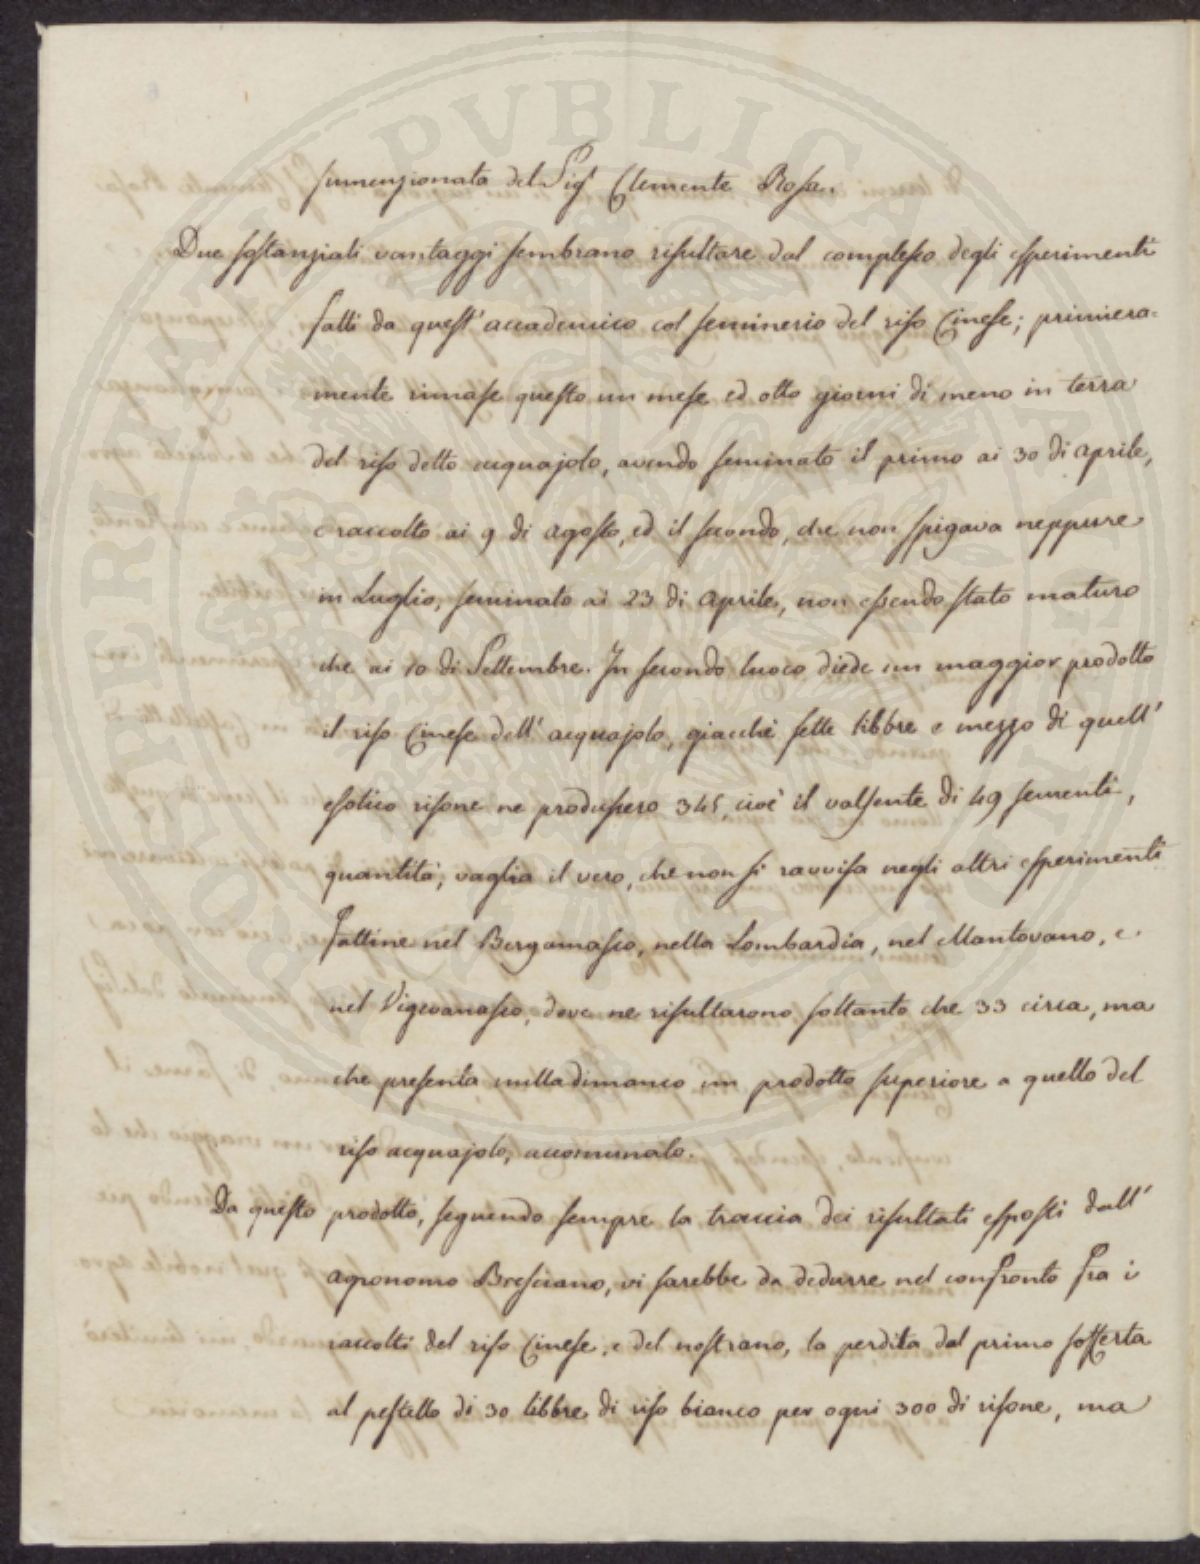 summenzionata del Sig.r Clemente Rosa.
Due sostanziali vantaggi sembrano risultare dal complesso degli esperimenti
fatti da quest' accademico col seminerio del riso Cinese; primiera=
mente rimase questo un mese ed otto giorni di meno in terra
del riso detto acquajolo, avendo seminato il primo ai 30 di aprile,
e raccolto ai 9 di agosto, ed il secondo, che non spigava neppure
in Luglio, seminato ai 23 di aprile, non essendo stato maturo
che ai 10 di Settembre. In secondo luoco diede un maggior prodotto
il riso Cinese dell' acquajolo, giacchè sette libbre e mezzo di quell'
esotico risone ne produssero 345, cioè il valsente di 49 sementi,
quantità, vaglia il vero, che non si ravvisa negli altri esperimenti
fattine nel Bergamasco, nella Lombardia, nel Mantovano, e
nel Vigevanasco, dove ne risultarono soltanto che 33 circa, ma
che presenta nulladimanco un prodotto superiore a quello del
riso acquajolo, accomunato.
Da questo prodotto, seguendo sempre la traccia dei risultati esposti dall'
agronomo Bresciano, vi sarebbe da dedurre nel confronto fra i
raccolti del riso Cinese, e del nostrano, la perdita dal primo sofferta
al pestello di 30 libbre di riso bianco per ogni 300 di risone, ma
PUBLICAE
PROSPERITATI